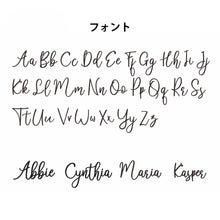 フォント
Aa Bb Cc Dd Ee Ff Gg Hh Ii Jj
Kk Ll Mm Nn Oo Pp Qq Rr Ss
Tt Uu Vv Ww Xx Yy Zz
Abbie Cynthia Maria Kasper